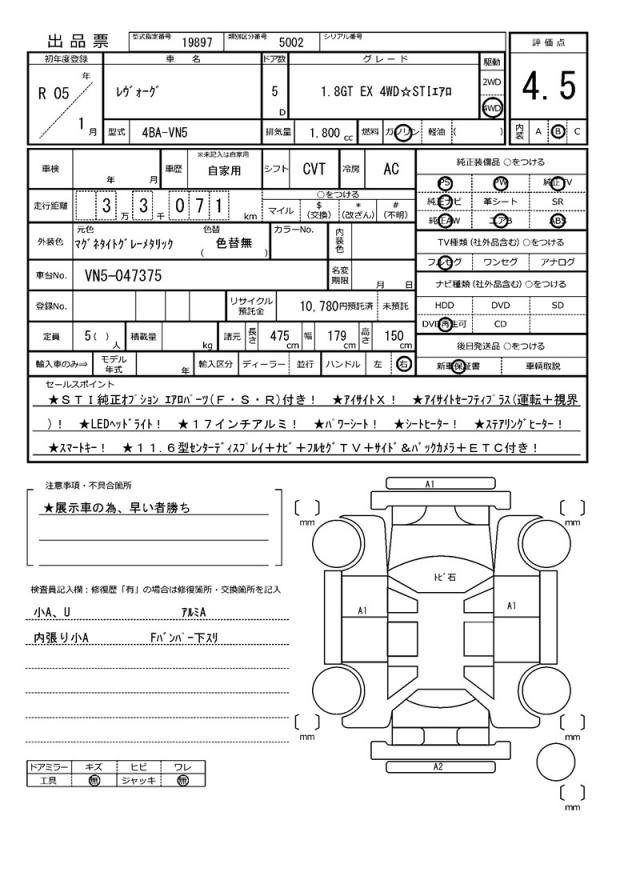 出品票 型式指定番号 19897 類別区分番号 5002 シリアル番号
初年度登録 車名 ドア数 グレード 駆動 評価点
R 05 年 1 月 レヴォーグ 5 D 1.8GT EX 4WD☆STIエアロ 2WD 4WD 4.5
型式 4BA-VN5 排気量 1.800 cc 燃料 ガソリン 軽油 ( ) 内装 A B C
車検 年 月 車歴 ※未記入は自家用 自家用 シフト CVT 冷房 AC 純正装備品 ○をつける
PS PW 純正TV
走行距離 3 万 3 千 0 7 1 km ○をつける 純正ナビ 革シート SR
マイル $(交換) *(改ざん) #(不明) 純正AW エアB ABS
外装色 元色 マグネタイトグレーメタリック 色替 ( 色替無 ) カラーNo. 内装色 TV種類(社外品含む)○をつける
フルセグ ワンセグ アナログ
車台No. VN5-047375 名変期限 月 日 ナビ種類(社外品含む)○をつける
登録No. リサイクル預託金 10,780円預託済 未預託 HDD DVD SD
DVD再生可 CD
定員 5( ) 人 積載量 kg 諸元 長さ 475 cm 幅 179 cm 高さ 150 cm 後日発送品 ○をつける
輸入車のみ⇒ モデル年式 年 輸入区分 ディーラー 並行 ハンドル 左 右 新車保証書 車輌取説
セールスポイント
★STI純正オプション エアロパーツ(F・S・R)付き! ★アイサイトX! ★アイサイトセーフティプラス(運転+視界
)! ★LEDヘッドライト! ★17インチアルミ! ★パワーシート! ★シートヒーター! ★ステアリングヒーター!
★スマートキー! ★11.6型センターディスプレイ+ナビ+フルセグTV+サイド&バックカメラ+ETC付き!
注意事項・不具合箇所
★展示車の為、早い者勝ち
検査員記入欄:修復歴「有」の場合は修復箇所・交換箇所を記入
小A、U アルミA
内張り小A Fバンパー下スリ
ドアミラー キズ ヒビ ワレ
工具 無 ジャッキ 無
A1
mm mm
トビ石
A1 A1
mm mm
A2
mm